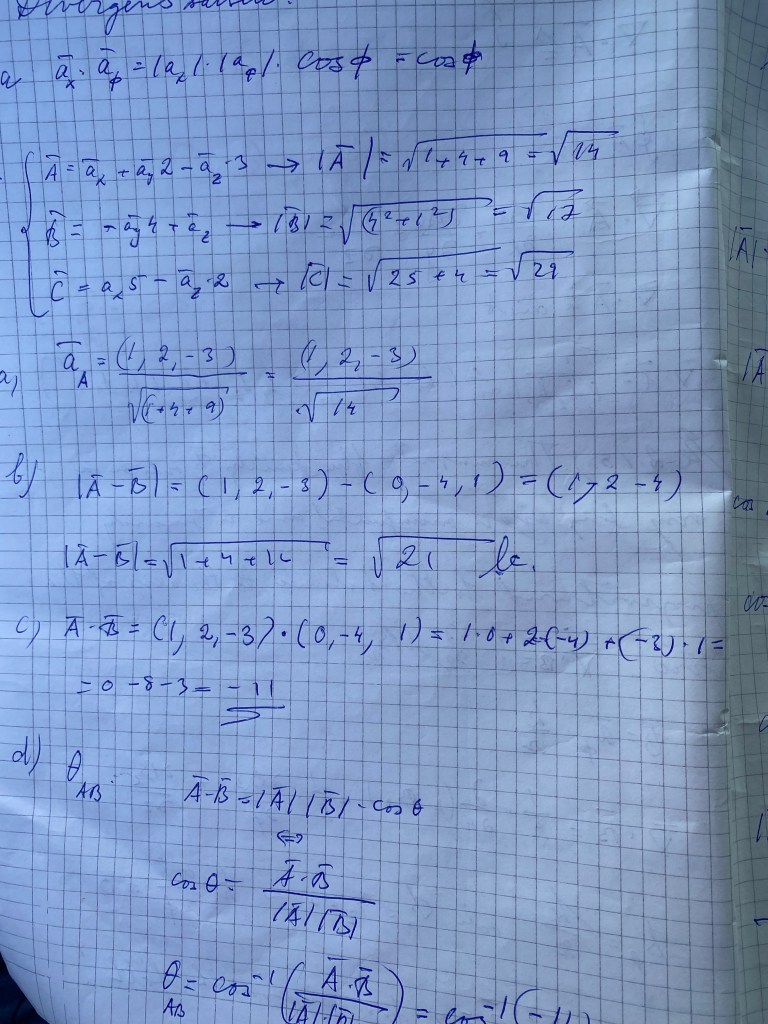 a \bar{a}_x \cdot \bar{a}_\phi = |a_x| \cdot |a_\phi| \cdot cos ϕ = cos ϕ
\bar{A} = \bar{a}_x + \bar{a}_y 2 - \bar{a}_z \cdot 3 → |\bar{A}| = √(1+4+9) = √14
\bar{B} = -\bar{a}_y 4 + \bar{a}_z → |\bar{B}| = √(4²+1²) = √17
\bar{C} = a_x 5 - \bar{a}_z \cdot 2 → |\bar{C}| = √(25+4) = √29
a, \bar{a}_A = (1, 2, -3) / √(1+4+9) = (1, 2, -3) / √14
b) |\bar{A} - \bar{B}| = (1, 2, -3) - (0, -4, 1) = (1, 2 - 4)
|\bar{A} - \bar{B}| = √(1+4+14) = √21
c) \bar{A} \cdot \bar{B} = (1, 2, -3) \cdot (0, -4, 1) = 1 \cdot 0 + 2 \cdot (-4) + (-3) \cdot 1 =
= 0 - 8 - 3 = -11
d) θ_AB : \bar{A} \cdot \bar{B} = |\bar{A}| |\bar{B}| \cdot cos θ
⇔
cos θ = \bar{A} \cdot \bar{B} / |\bar{A}| |\bar{B}|
θ_AB = cos⁻¹ (\bar{A} \cdot \bar{B} / |\bar{A}| \cdot |\bar{B}|) = cos⁻¹ (-11